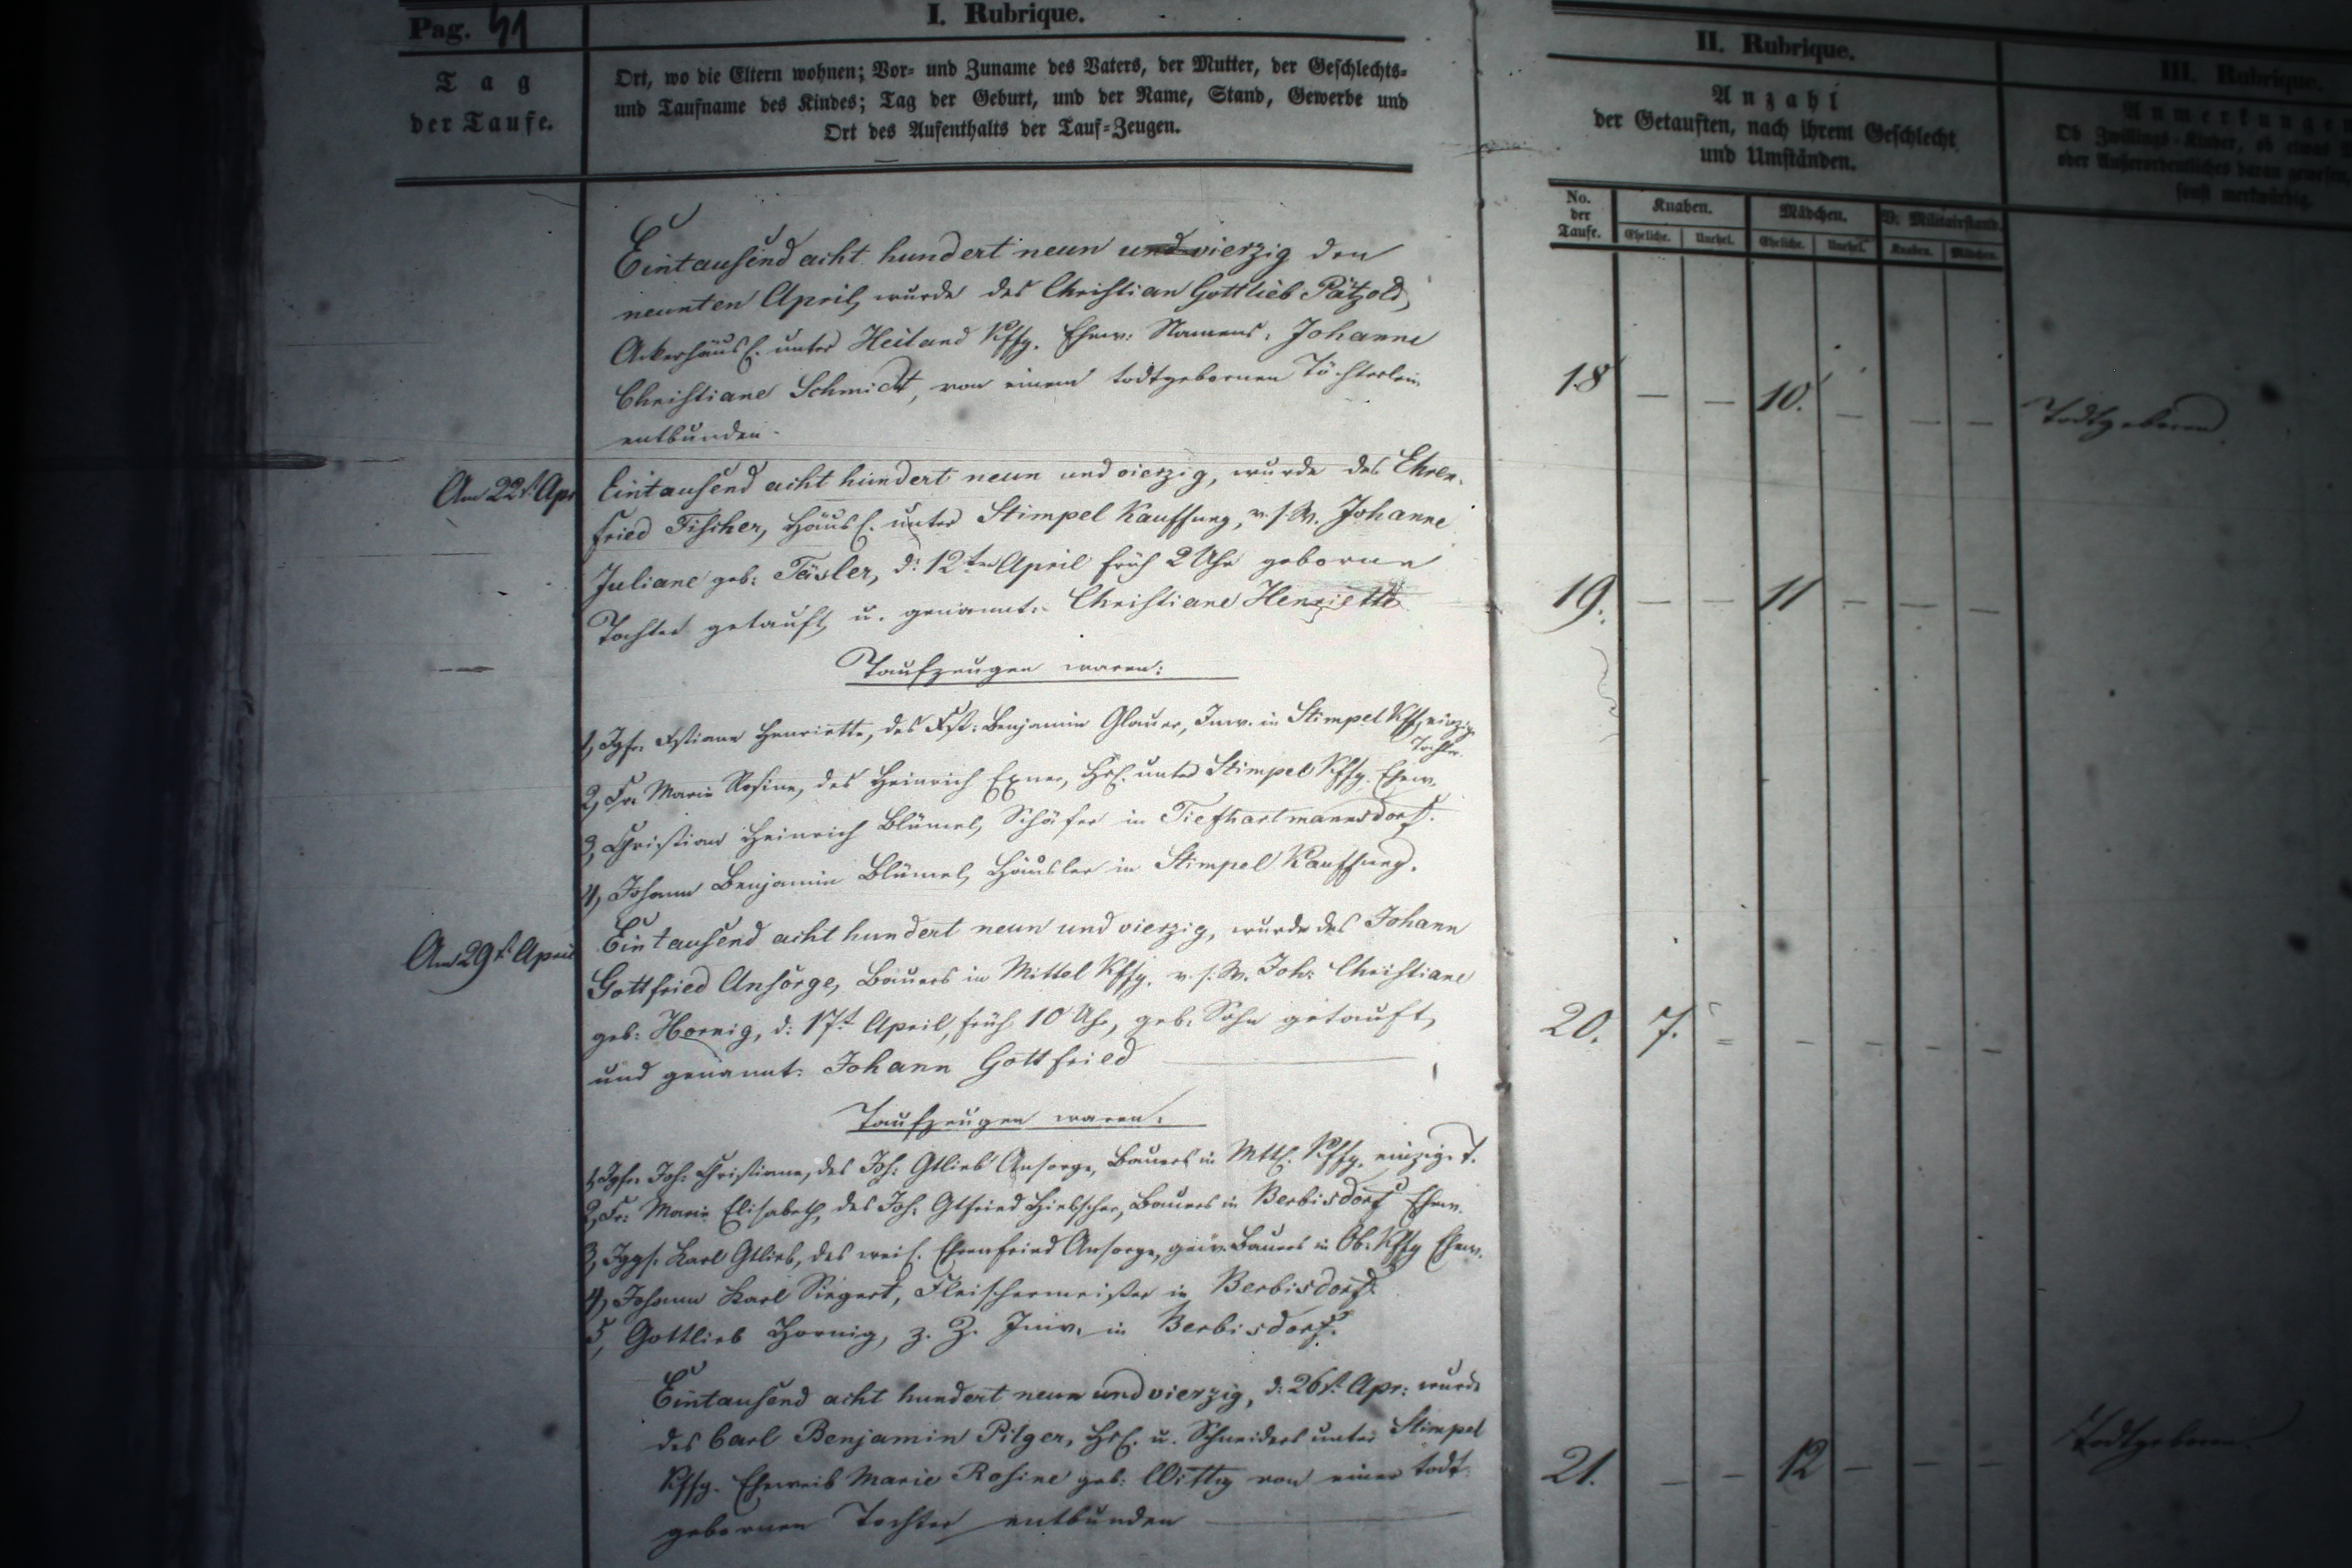 Pag. 41
I. Rubrique.
Tag
der Taufe.
Ort, wo die Eltern wohnen; Vor- und Zuname des Vaters, der Mutter, der Geschlechts-
und Taufname des Kindes; Tag der Geburt, und der Name, Stand, Gewerbe und
Ort des Aufenthalts der Tauf-Zeugen.
II. Rubrique.
Anzahl
der Getauften, nach ihrem Geschlecht
und Umständen.
No.
der
Taufe.
Knaben.
Mädchen.
V. Militairstand.
Eheliche. Unehel. Eheliche. Unehel. Knaben. Mädchen.
III. Rubrique.
Anmerkungen
Ob Zwillings-Kinder, ob etwas
oder Außerordentliches daran gewesen,
sonst merkwürdig.
Eintausend acht hundert neun und vierzig den
neunten April, wurde des Christian Gottlieb Pätzold,
Ackerhäusl. unter Heiland Kffg. Ehew. Namens: Johanne
Christiane Schmidt, von einem todtgebornen Töchterlein
entbunden.
18 — — 10. — — — Todtgeboren
Am 22t. Apr
Eintausend acht hundert neun und vierzig, wurde des Ehren-
fried Fischer, Häusl. unter Stimpel Kauffung, v. s. W. Johanne
Juliane geb: Täsler, d: 12ten April früh 2 Uhr geborne
Tochter getauft u. genannt: Christiane Henriette
19. — — 11 — — —
Taufzeugen waren:
1, Jgfr. Xstiane Henriette, des Xst: Benjamin Glauer, Inw. in Stimpel Kffg. einzige
Tochter.
2, Fr. Marie Rosine, des Heinrich Exner, Hsl. unter Stimpel Kffg. Ehew.
3, Christian Heinrich Blümel, Schäfer in Tiefhartmannsdorf.
4, Johann Benjamin Blümel, Häusler in Stimpel Kauffung.
Am 29t. April
Eintausend acht hundert neun und vierzig, wurde des Johann
Gottfried Ansorge, Bauers in Mittel Kffg. v. s. W. Joh: Christiane
geb: Hornig, d: 17t April, früh 10 Uhr, geb. Sohn getauft,
und genannt: Johann Gottfried
20. 7. — — — — —
Taufzeugen waren:
1, Jgfr. Joh: Christiane, des Joh: Gtlieb Ansorge, Bauers in Mttl. Kffg. einzige T.
2, Fr: Marie Elisabeth, des Joh. Gtfried Hielscher, Bauers in Berbisdorf Ehew.
3, Jggs. Karl Gtlieb, des weil. Ehrenfried Ansorge, gew. Bauers in Ob. Kffg
4, Johann Karl Siegert, Fleischermeister in Berbisdorf.
5, Gottlieb Hornig, z. Z. Inw. in Berbisdorf.
Eintausend acht hundert neun und vierzig, d: 26t. Apr: wurde
des Carl Benjamin Pilger, Hsl. u. Schneiders unter Stimpel
Kffg. Eheweib Marie Rosine geb: Wittig von einer todt-
gebornen Tochter entbunden
21. — — 12 — — — Todtgeboren.